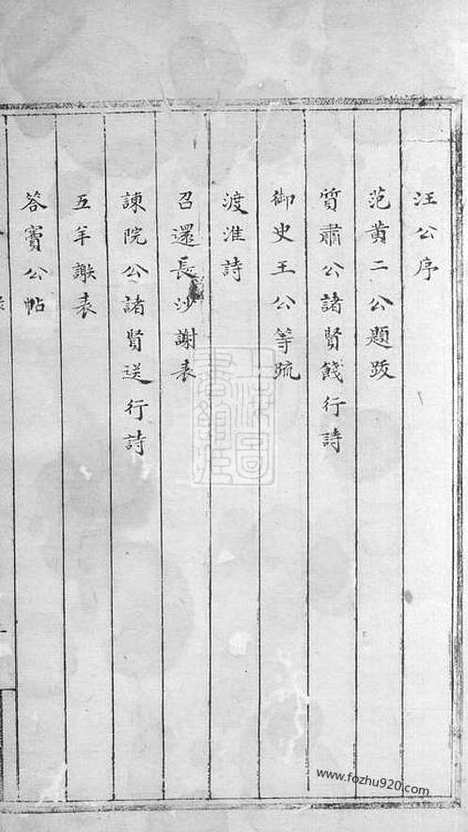 汪公序
范黄二公題跋
質肅公諸賢餞行詩
御史王公等疏
渡淮詩
召還長沙謝表
諫院公諸賢送行詩
五年謝表
答竇公帖
www.fozhu920.com